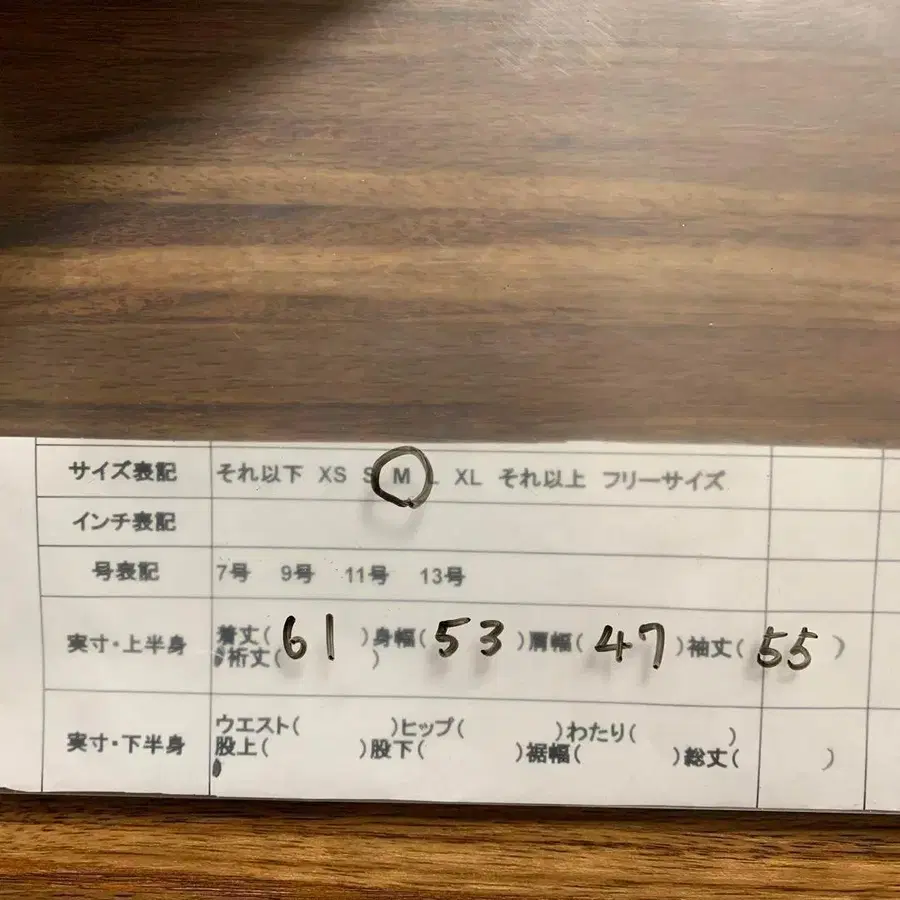 サイズ表記 それ以下 XS S M L XL それ以上 フリーサイズ
インチ表記
号表記 7号 9号 11号 13号
実寸・上半身 着丈( 61 )身幅( 53 )肩幅( 47 )袖丈( 55 )
裄丈( )
実寸・下半身 ウエスト( )ヒップ( )わたり( )
股上( )股下( )裾幅( )総丈( )